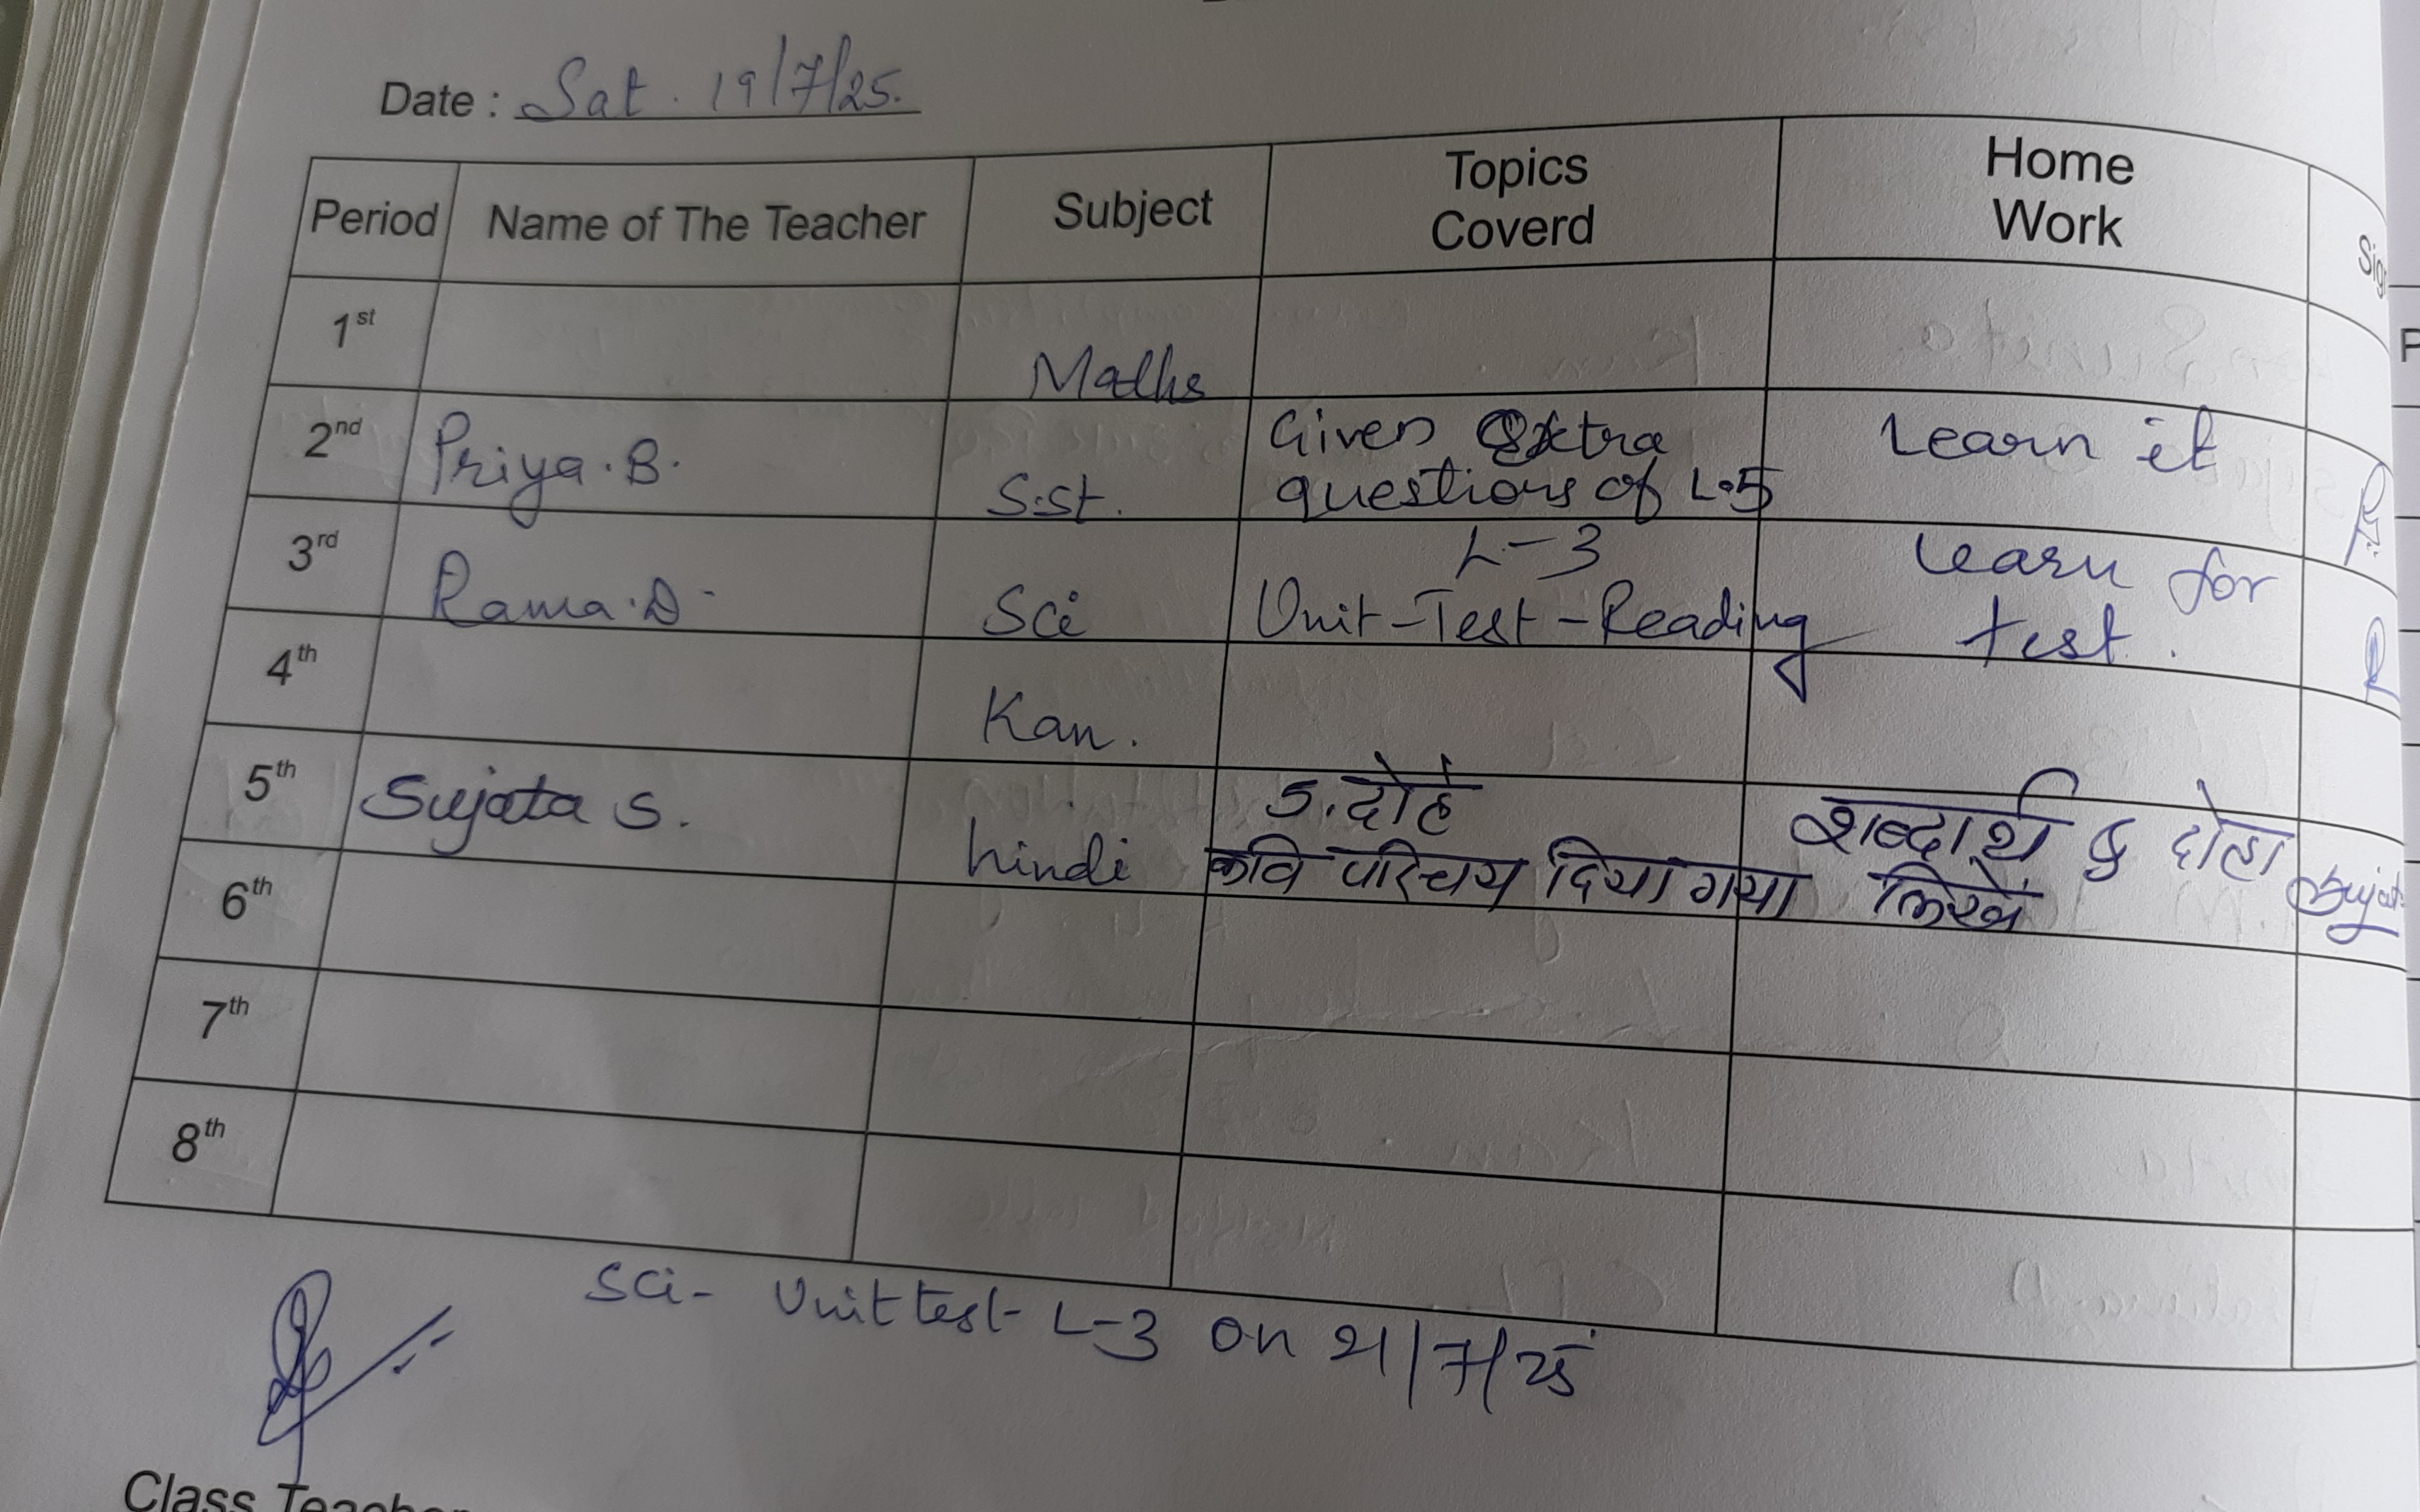 Date : Sat. 19/7/25.
Period Name of The Teacher Subject Topics Coverd Home Work
1st Maths
2nd Priya.B. S.st. Given Extra questions of L-5 Learn it
3rd Rama.D. Sci L-3 Unit-Test-Reading Learn for test.
4th Kan.
5th Sujata S. hindi 5. दोहे कवि परिचय दिया गया शब्दार्थ दोहा लिखें Sujat
6th
7th
8th
Sci- Unit test- L-3 on 21/7/25
Class